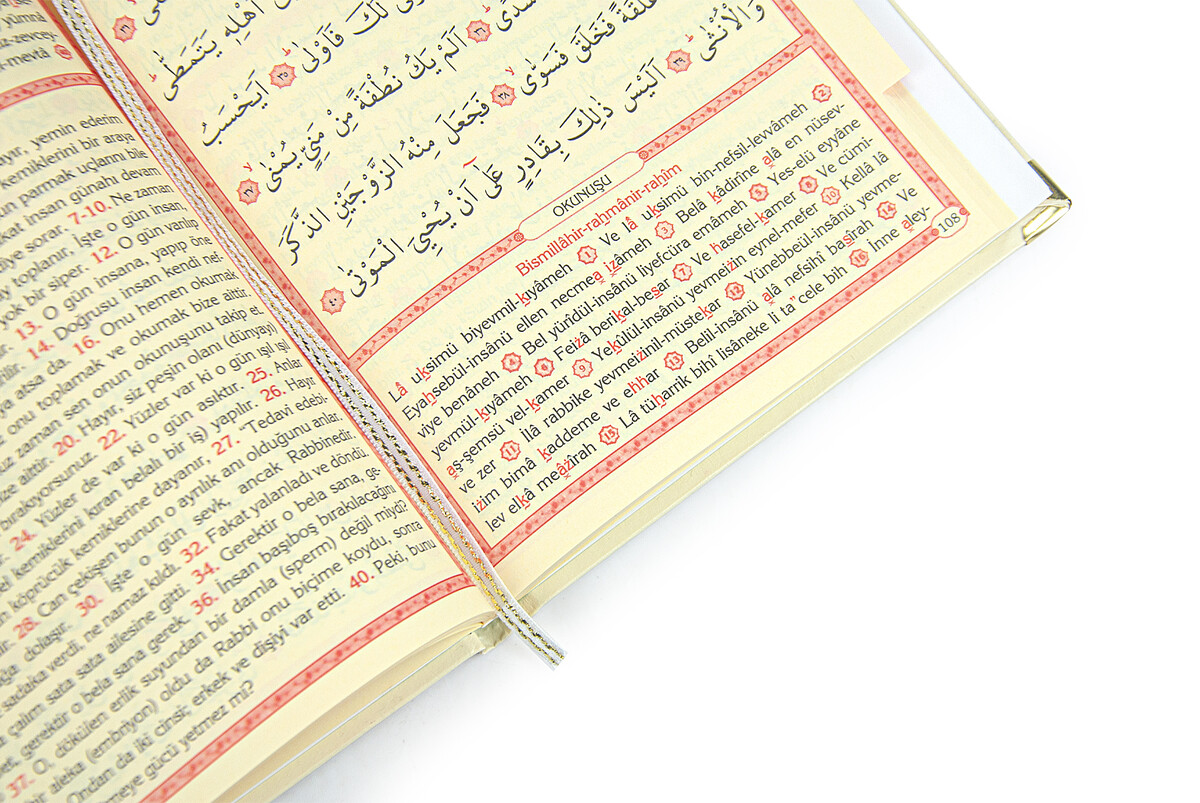 yümnâ
z-zevcey-
-mevtâ
ayır, yemin ederim
kemiklerini bir araya
un parmak uçlarını bile
akat insan günahı devam
diye sorar. 7-10. Ne zaman
ay toplanır, İşte o gün insan,
yok bir siper. 12. O gün varılıp
13. O gün insana, yapıp öne
14. Doğrusu insan kendi nef-
ya atsa da. 16. Onu hemen okumak
z onu toplamak ve okumak bize aittir.
uz zaman sen onun okunuşunu takip et.
ize aittir. 20. Hayır, siz peşin olanı (dünyayı)
bırakıyorsunuz. 22. Yüzler var ki o gün ışıl ışıl
24. Yüzler de var ki o gün asıktır. 25. Anlar
eli kemiklerini kıran belalı bir iş) yapılır. 26. Hayır
n köprücük kemiklerine dayanır, 27. “Tedavi edebi-
28. Can çekişen bunun o ayrılık anı olduğunu anlar.
ağa dolaşır. 30. İşte o gün sevk, ancak Rabbinedir.
sadaka verdi, ne namaz kıldı. 32. Fakat yalanladı ve döndü.
a çalım sata sata ailesine gitti. 34. Gerektir o bela sana, ge-
er, gerektir o bela sana gerek. 36. İnsan başıboş bırakılacağını
37. O, dökülen erlik suyundan bir damla (sperm) değil miydi?
bir aleka (embriyon) oldu da Rabbi onu biçime koydu, sonra
Ondan da iki cinsi; erkek ve dişiyi var etti. 40. Peki, bunu
meye gücü yetmez mi?
اَهْلِهٖ يَتَمَطّٰى ﴿٣٣﴾
لَكَ فَاَوْلٰى ﴿٣٥﴾ اَيَحْسَبُ
سُدًى ﴿٣٦﴾ اَلَمْ يَكُ نُطْفَةً مِنْ مَنِيٍّ يُمْنٰى ﴿٣٧﴾
عَلَقَةً فَخَلَقَ فَسَوّٰى ﴿٣٨﴾ فَجَعَلَ مِنْهُ الزَّوْجَيْنِ الذَّكَرَ
وَالْاُنْثٰى ﴿٣٩﴾ اَلَيْسَ ذٰلِكَ بِقَادِرٍ عَلٰٓى اَنْ يُحْيِيَ الْمَوْتٰى ﴿٤٠﴾
OKUNUŞU
Bismillâhir-rahmânir-rahîm
Lâ uksimü biyevmil-kıyâmeh 1 Ve lâ uksimü bin-nefsil-levvâmeh 2
Eyahsebül-insânü ellen necmea izâmeh 3 Belâ kâdirîne alâ en nüsev-
viye benâneh 4 Bel yürîdül-insânü liyefcüra emâmeh 5 Yes-elü eyyâne
yevmül-kıyâmeh 6 Feizâ berikal-besar 7 Ve hasefel-kamer 8 Ve cümi-
aş-şemsü vel-kamer 9 Yekûlül-insânü yevmeizin eynel-mefer 10 Kellâ lâ
ve zer 11 İlâ rabbike yevmeizinil-müstekar 12 Yünebbeül-insânü yevme-
izim bimâ kaddeme ve ehhar 13 Belil-insânü alâ nefsihî basîrah 14 Ve
lev elkâ meâzîrah 15 Lâ tüharrik bihî lisâneke li ta"cele bih 16 İnne aley-
108